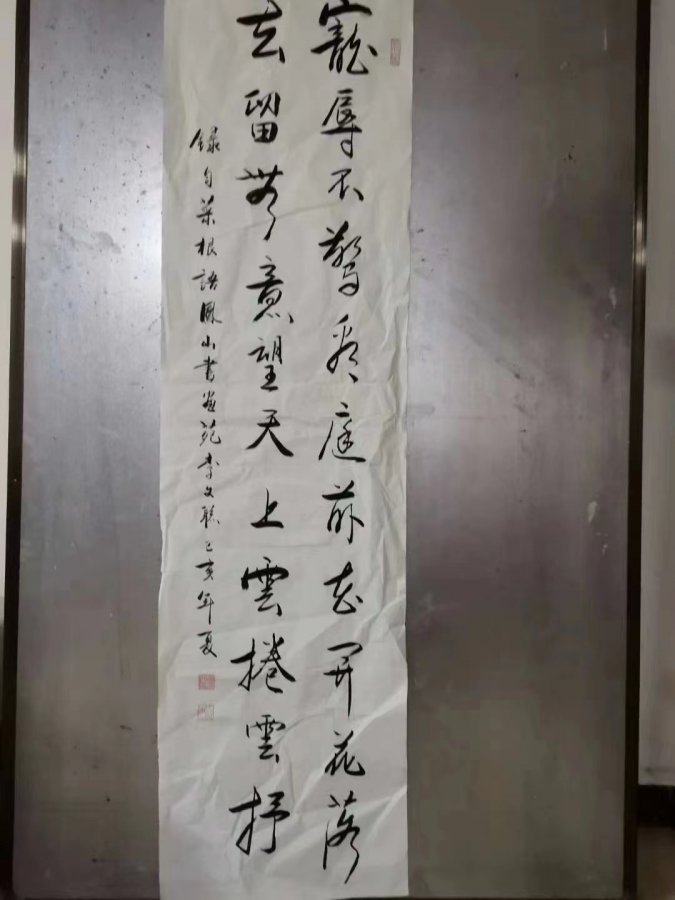 寵辱不驚看庭前花開花落
去留無意望天上雲捲雲抒
錄自菜根語鳳山書畫苑李文聪己亥年夏